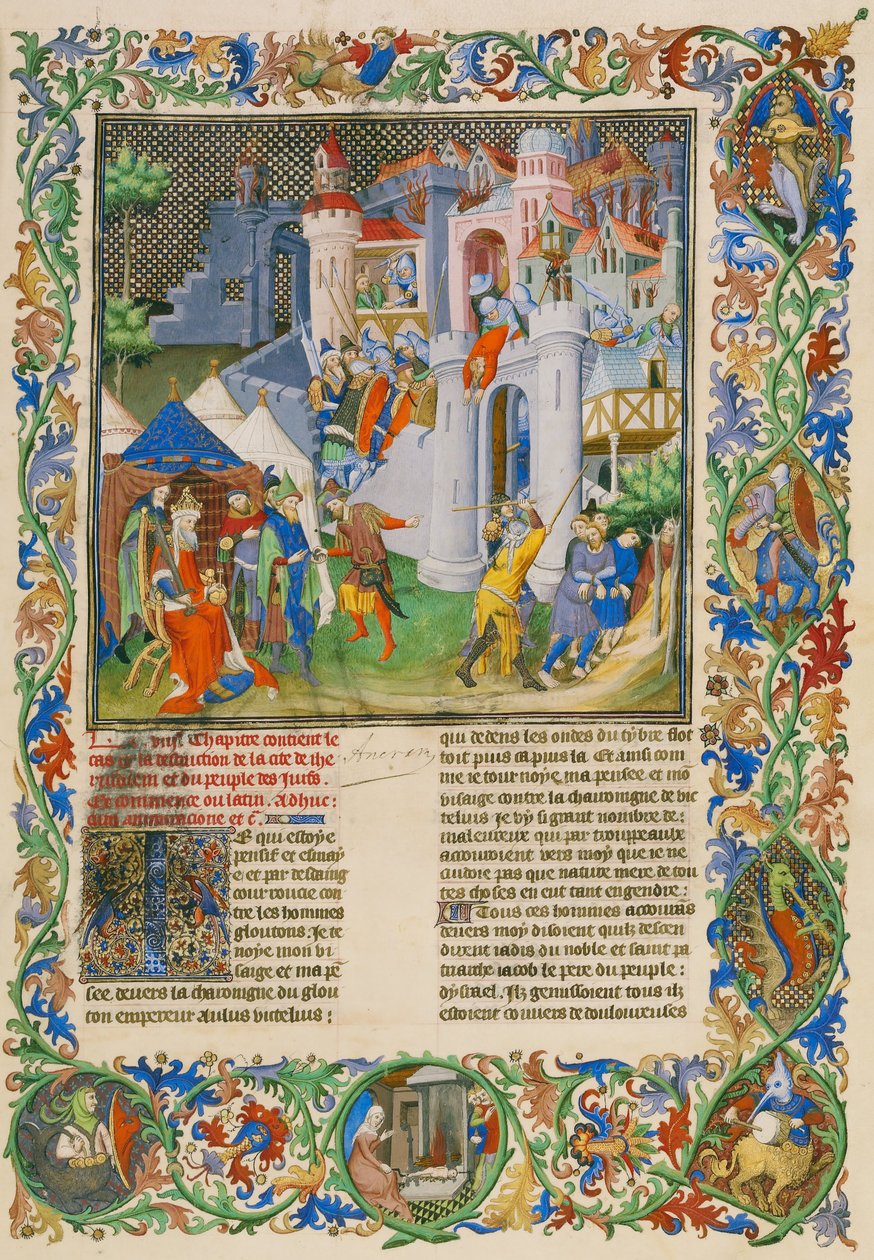 Le .viii. Chapitre contient le
cas de la destruction de la cite de ihe
rusalem et du peuple des Juifs.
Et commence ou latin. Adhuc
cum ammiracione et c̃.
E qui estoye
pensif et esmay
e et par desdaing
courroucie con
tre les hommes
gloutons. Je te
noye mon vi
saige et ma pẽ
see devers la charoingne du glou
ton empereur Aulus victelius:
qui dedens les ondes du tybre flot
toit puis ca puis la. Et ainsi com
me ie tournoye ma pensee et mo
visaige contre la charoingne de vic
telius ie vy si grant nombre de
maleureux qui par troupeaulx
acouroient vers moy que ie ne
cuidoie pas que nature mere de tou
tes choses en eut tant engendre:
Tous ces hommes acourãs
devers moy disoient quilz descen
dirent iadis du noble et saint pa
triarche iacob le pere du peuple:
dysrael. Ilz gemissoient tous ilz
estoient couvers de douloureuses